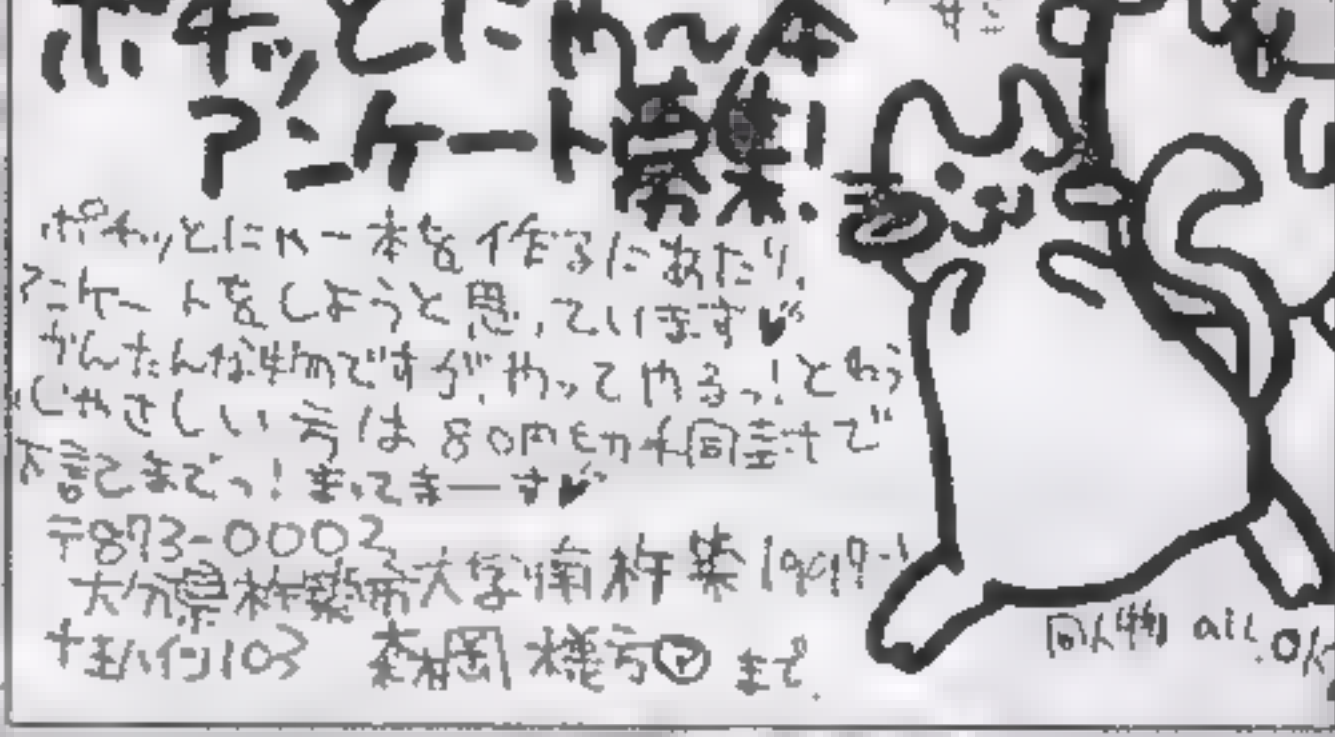 ポチッとにゃ～本
アンケート募集!
ポチッとにゃー本を作るにあたり、
アンケートをしようと思っています♥
かんたんな物ですが、やってやるっ!とゆう
やさしい方は80円切手同封で
下記までっ!まってまーす♥
〒873-0002
大分県杵築市大字南杵築1997-1
ハイツ103 森岡様方 まで.
同人物 all OK